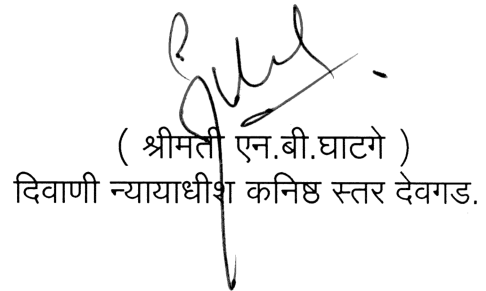 ( श्रीमती एन.बी.घाटगे )
दिवाणी न्यायाधीश कनिष्ठ स्तर देवगड.